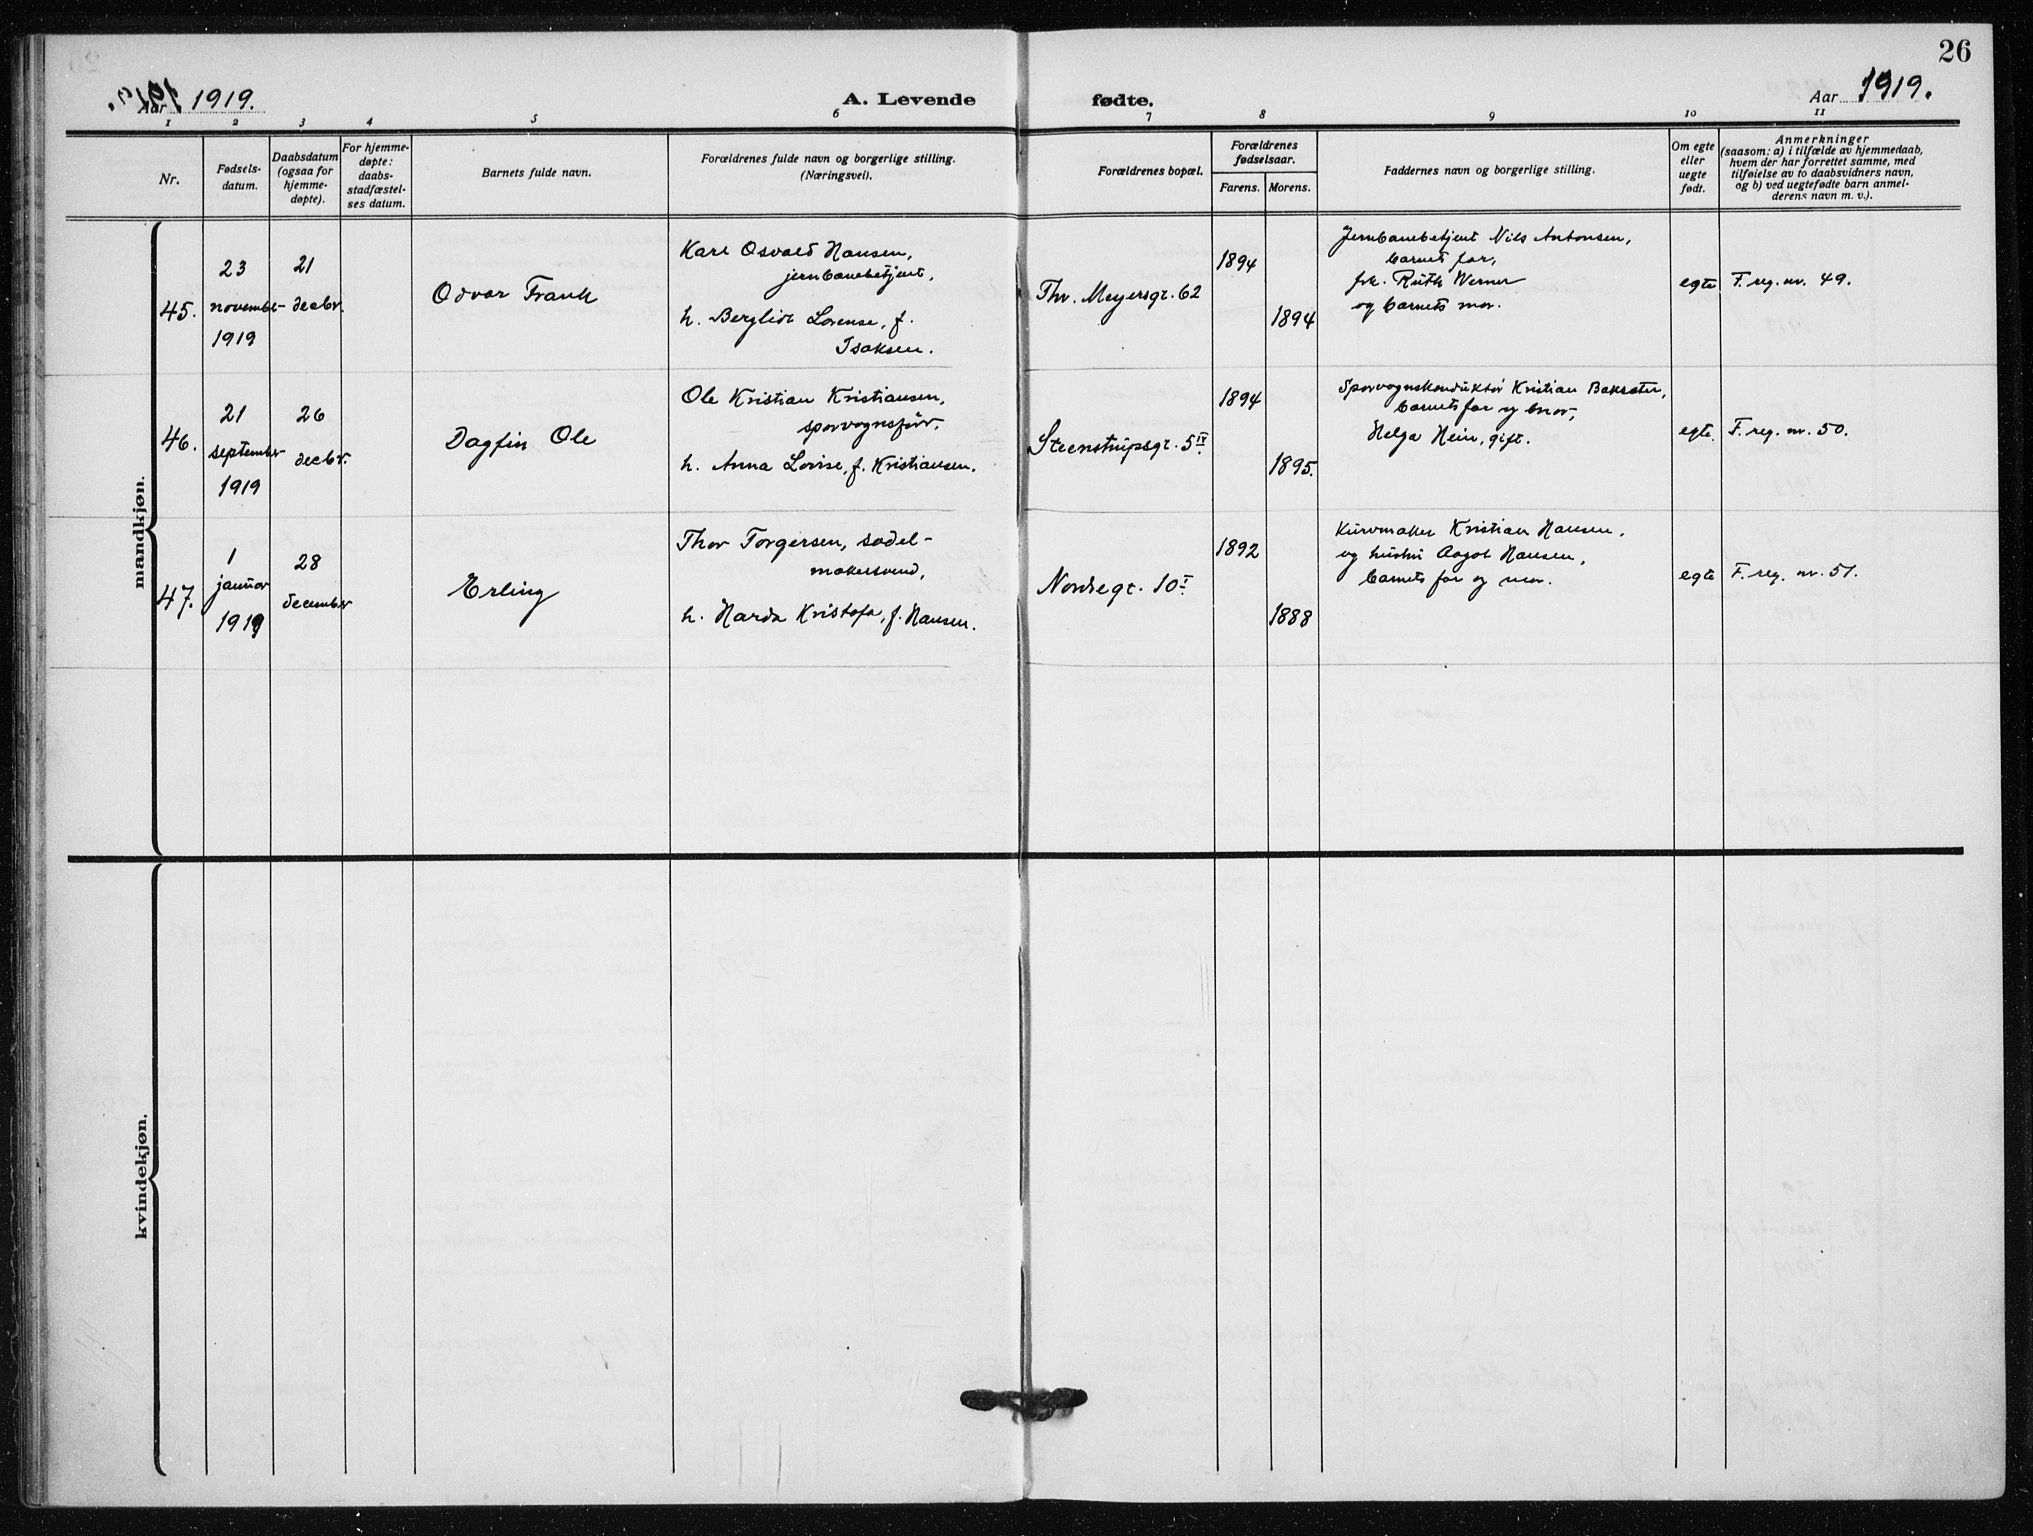 26
Aar 1919.
A. Levende fødte.
Aar 1919.
1 2 3 4 5 6 7 8 9 10 11
Nr.
Fødsels-
datum.
Daabsdatum
(ogsaa for
hjemme-
døpte).
For hjemme-
døpte:
daabs-
stadfæstel-
ses datum.
Barnets fulde navn.
Forældrenes fulde navn og borgerlige stilling.
(Næringsvei).
Forældrenes bopæl.
Forældrenes
fødselsaar.
Farens. Morens.
Faddernes navn og borgerlige stilling.
Om egte
eller
uegte
født.
Anmerkninger
(saasom: a) i tilfælde av hjemmedaab,
hvem der har forrettet samme, med
tilføielse av to daabsvidners navn,
og b) ved uegtefødte barn anmel-
derens navn m. v.).
mandkjøn.
45.
23
november
1919
21
decbr.
Odvar Frank
Karl Osvald Hansen,
jernbanebetjent,
h. Berglidt Lovense, f.
Isaksen.
Thv. Meyersgt. 62
1894
1894
Jernbanebetjent Nils Antonsen,
barnets far,
frk. Ruth Werner
og barnets mor.
egte
F. reg. nr. 49.
46.
21
september
1919
26
decbr.
Dagfin Ole
Ole Kristian Kristiansen,
sporvognsfør.
h. Anna Lovise, f. Kristiansen.
Steenstrupsgt. 5 IV
1894
1895.
Sporvognskonduktør Kristian Bakseter,
barnets far og mor,
Helga Hein, gift.
egte.
F. reg. nr. 50.
47.
1
januar
1919
28
december
Erling
Thor Torgersen, sadel-
makersvend,
h. Harda Kristofa, f. Hansen.
Nordregt. 10 I
1892
1888
Kurvmaker Kristian Hansen,
og hustru Aagot Hansen,
barnets far og mor.
egte
F. reg. nr. 51.
kvindekjøn.